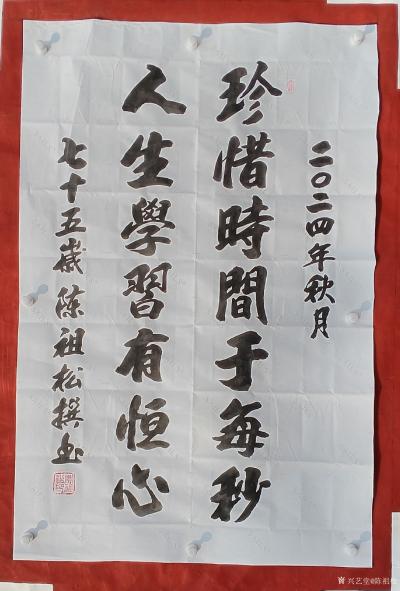 二〇二四年秋月
珍惜時間于每秒
人生學習有恒心
七十五歲陈祖松撰书
兴艺堂@陈祖松